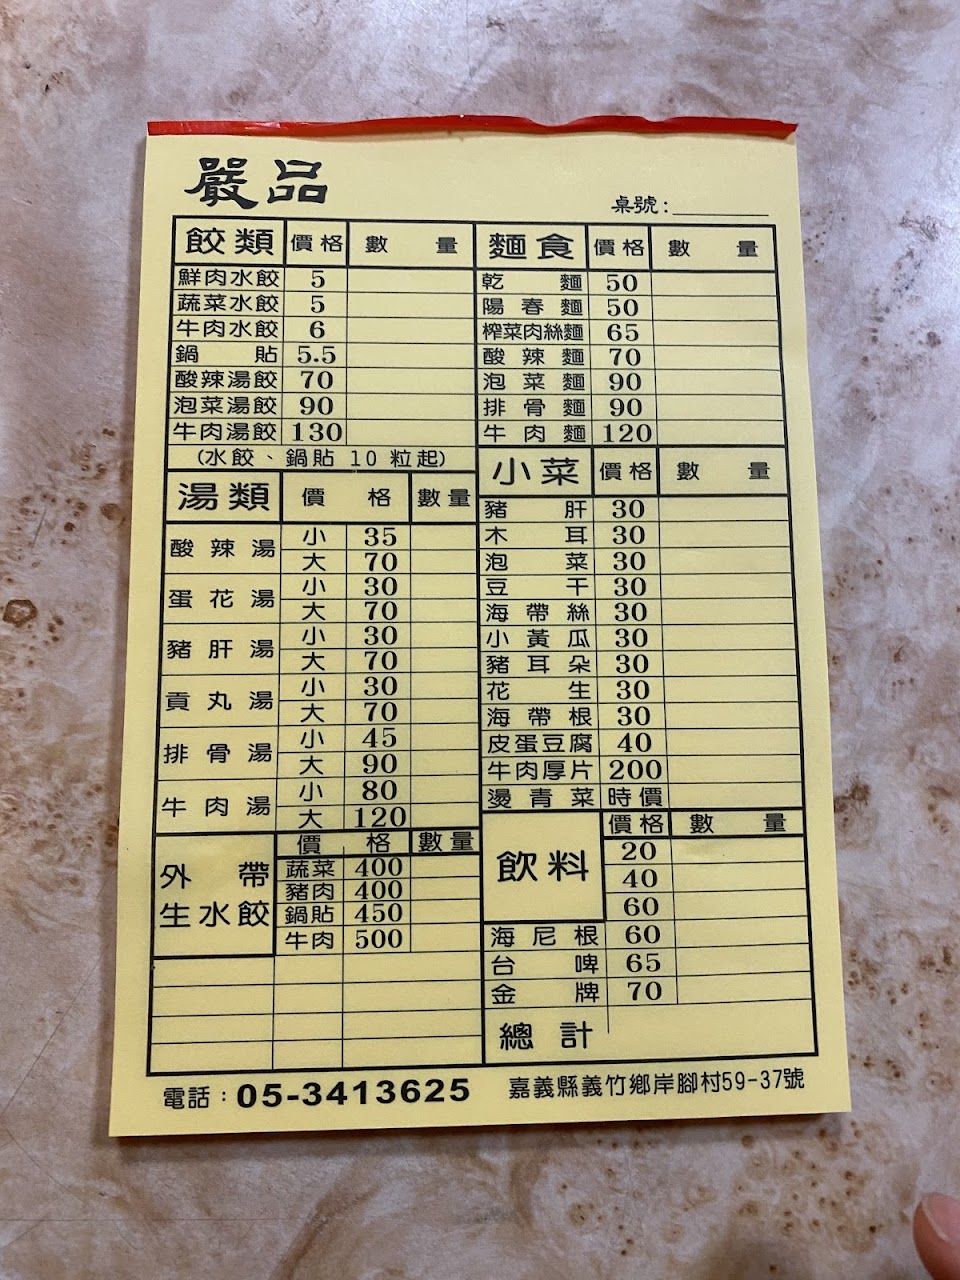 嚴品
桌號:
餃類 價格 數量
鮮肉水餃 5
蔬菜水餃 5
牛肉水餃 6
鍋貼 5.5
酸辣湯餃 70
泡菜湯餃 90
牛肉湯餃 130
(水餃、鍋貼 10 粒起)
湯類 價格 數量
酸辣湯 小 35
大 70
蛋花湯 小 30
大 70
豬肝湯 小 30
大 70
貢丸湯 小 30
大 70
排骨湯 小 45
大 90
牛肉湯 小 80
大 120
外帶生水餃 價格 數量
蔬菜 400
豬肉 400
鍋貼 450
牛肉 500
麵食 價格 數量
乾麵 50
陽春麵 50
榨菜肉絲麵 65
酸辣麵 70
泡菜麵 90
排骨麵 90
牛肉麵 120
小菜 價格 數量
豬肝 30
木耳 30
泡菜 30
豆干 30
海帶絲 30
小黃瓜 30
豬耳朵 30
花生 30
海帶根 30
皮蛋豆腐 40
牛肉厚片 200
燙青菜 時價
飲料 價格 數量
20
40
60
海尼根 60
台啤 65
金牌 70
總計
電話:05-3413625
嘉義縣義竹鄉岸腳村59-37號